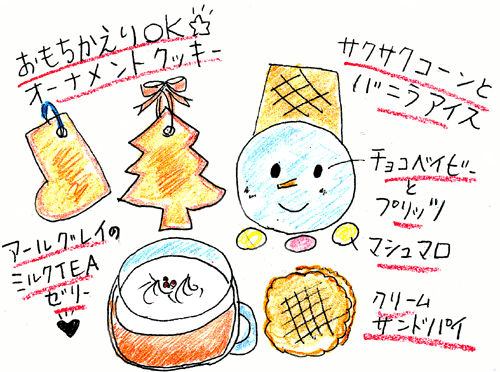 おもちかえりOK☆
オーナメントクッキー
サクサクコーンと
バニラアイス
チョコベイビー
と
プリッツ
マシュマロ
アールグレイの
ミルクTEA
ゼリー
♥
クリーム
サンドパイ